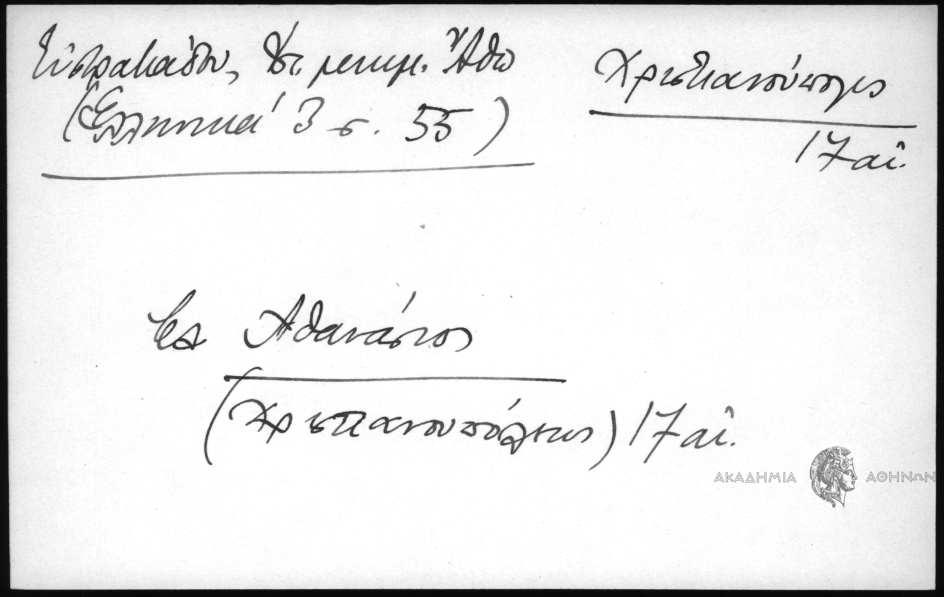 Εὐστρατιάδου, Ἁγ. μνημ. Ἄθω
(Ἑλληνικά 3 σ. 55)
Χριστιανούπολις
17 αἰ.
Ἀθανάσιος
(Χριστιανουπόλεως) 17 αἰ.
ΑΚΑΔΗΜΙΑ ΑΘΗΝΩΝ